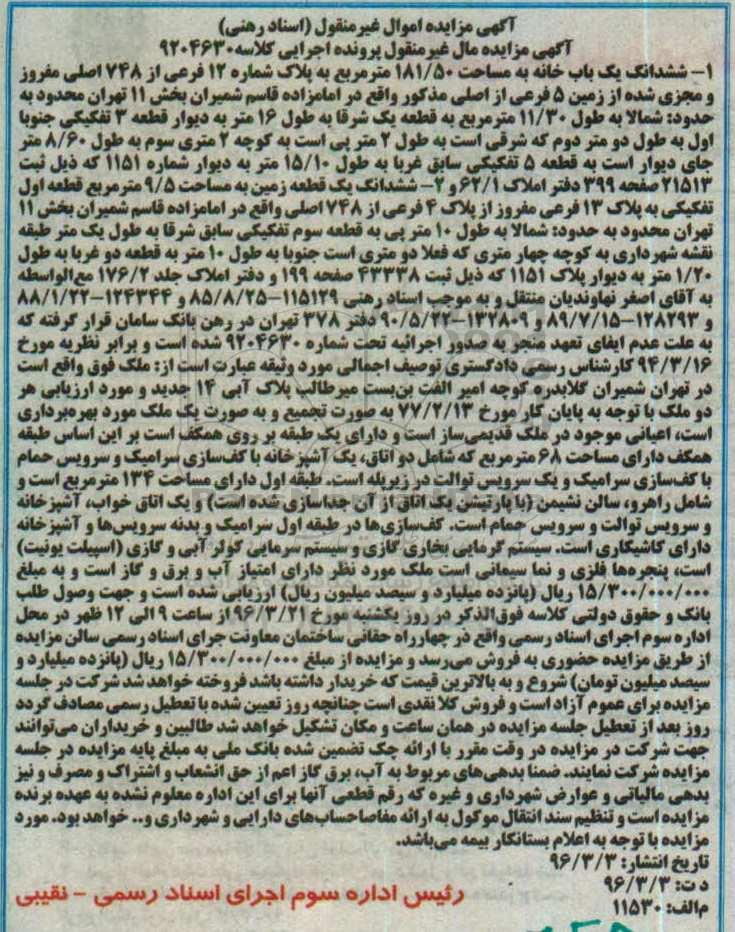 آگهی مزایده اموال غیرمنقول (اسناد رهنی)
آگهی مزایده مال غیرمنقول پرونده اجرایی کلاسه ۹۲۰۴۶۳۰
۱- ششدانگ یک باب خانه به مساحت ۱۸۱/۵۰ مترمربع به پلاک شماره ۱۲ فرعی از ۷۴۸ اصلی مفروز
و مجزی شده از زمین ۵ فرعی از اصلی مذکور واقع در امامزاده قاسم شمیران بخش ۱۱ تهران محدود به
حدود: شمالا به طول ۱۱/۳۰ مترمربع به قطعه یک شرقا به طول ۱۶ متر به دیوار قطعه ۳ تفکیکی جنوبا
اول به طول دو متر دوم که شرقی است به طول ۲ متر پی است به کوچه ۲ متری سوم به طول ۸/۶۰ متر
جای دیوار است به قطعه ۵ تفکیکی سابق غربا به طول ۱۵/۱۰ متر به دیوار شماره ۱۱۵۱ که ذیل ثبت
۲۱۵۱۳ صفحه ۳۹۹ دفتر املاک ۶۲/۱ و ۲- ششدانگ یک قطعه زمین به مساحت ۹/۵ مترمربع قطعه اول
تفکیکی به پلاک ۱۳ فرعی مفروز از پلاک ۴ فرعی از ۷۴۸ اصلی واقع در امامزاده قاسم شمیران بخش ۱۱
تهران محدود به حدود: شمالا به طول ۱۰ متر پی به قطعه سوم تفکیکی سابق شرقا به طول یک متر طبقه
نقشه شهرداری به کوچه چهار متری که فعلا دو متری است جنوبا به طول ۱۰ متر به قطعه دو غربا به طول
۱/۲۰ متر به دیوار پلاک ۱۱۵۱ که ذیل ثبت ۴۳۳۳۸ صفحه ۱۹۹ و دفتر املاک جلد ۱۷۶/۲ مع‌الواسطه
به آقای اصغر نهاوندیان منتقل و به موجب اسناد رهنی ۱۱۵۱۲۹-۸۵/۸/۲۵ و ۱۲۴۳۴۴-۸۸/۱/۲۲
و ۱۲۸۲۹۳-۸۹/۷/۱۵ و ۱۳۲۸۰۹-۹۰/۵/۲۲ دفتر ۳۷۸ تهران در رهن بانک سامان قرار گرفته که
به علت عدم ایفای تعهد منجر به صدور اجرائیه تحت شماره ۹۲۰۴۶۳۰ شده است و برابر نظریه مورخ
۹۴/۳/۱۶ کارشناس رسمی دادگستری توصیف اجمالی مورد وثیقه عبارت است از: ملک فوق واقع است
در تهران شمیران گلابدره کوچه امیر الفت بن‌بست میرطالب پلاک آبی ۱۴ جدید و مورد ارزیابی هر
دو ملک با توجه به پایان کار مورخ ۷۷/۲/۱۳ به صورت تجمیع و به صورت یک ملک مورد بهره‌برداری
است، اعیانی موجود در ملک قدیمی‌ساز است و دارای یک طبقه بر روی همکف است بر این اساس طبقه
همکف دارای مساحت ۶۸ مترمربع که شامل دو اتاق، یک آشپزخانه با کف‌سازی سرامیک و سرویس حمام
با کف‌سازی سرامیک و یک سرویس توالت در زیرپله است. طبقه اول دارای مساحت ۱۳۴ مترمربع است و
شامل راهرو، سالن نشیمن (با پارتیشن یک اتاق از آن جداسازی شده است) و یک اتاق خواب، آشپزخانه
و سرویس توالت و سرویس حمام است. کف‌سازی‌ها در طبقه اول سرامیک و بدنه سرویس‌ها و آشپزخانه
دارای کاشیکاری است. سیستم گرمایی بخاری گازی و سیستم سرمایی کولر آبی و گازی (اسپیلت یونیت)
است، پنجره‌ها فلزی و نما سیمانی است ملک مورد نظر دارای امتیاز آب و برق و گاز است و به مبلغ
۱۵/۳۰۰/۰۰۰/۰۰۰ ریال (پانزده میلیارد و سیصد میلیون ریال) ارزیابی شده است و جهت وصول طلب
بانک و حقوق دولتی کلاسه فوق‌الذکر در روز یکشنبه مورخ ۹۶/۳/۲۱ از ساعت ۹ الی ۱۲ ظهر در محل
اداره سوم اجرای اسناد رسمی واقع در چهارراه حقانی ساختمان معاونت جرای اسناد رسمی سالن مزایده
از طریق مزایده حضوری به فروش می‌رسد و مزایده از مبلغ ۱۵/۳۰۰/۰۰۰/۰۰۰ ریال (پانزده میلیارد و
سیصد میلیون تومان) شروع و به بالاترین قیمت که خریدار داشته باشد فروخته خواهد شد شرکت در جلسه
مزایده برای عموم آزاد است و فروش کلا نقدی است چنانچه روز تعیین شده با تعطیل رسمی مصادف گردد
روز بعد از تعطیل جلسه مزایده در همان ساعت و مکان تشکیل خواهد شد طالبین و خریداران می‌توانند
جهت شرکت در مزایده در وقت مقرر با ارائه چک تضمین شده بانک ملی به مبلغ پایه مزایده در جلسه
مزایده شرکت نمایند. ضمنا بدهی‌های مربوط به آب، برق گاز اعم از حق انشعاب و اشتراک و مصرف و نیز
بدهی مالیاتی و عوارض شهرداری و غیره که رقم قطعی آنها برای این اداره معلوم نشده به عهده برنده
مزایده است و تنظیم سند انتقال موکول به ارائه مفاصاحساب‌های دارایی و شهرداری و.. خواهد بود. مورد
مزایده با توجه به اعلام بستانکار بیمه می‌باشد.
تاریخ انتشار: ۹۶/۳/۳
د ت: ۹۶/۳/۳
م‌الف: ۱۱۵۳۰
رئیس اداره سوم اجرای اسناد رسمی - نقیبی